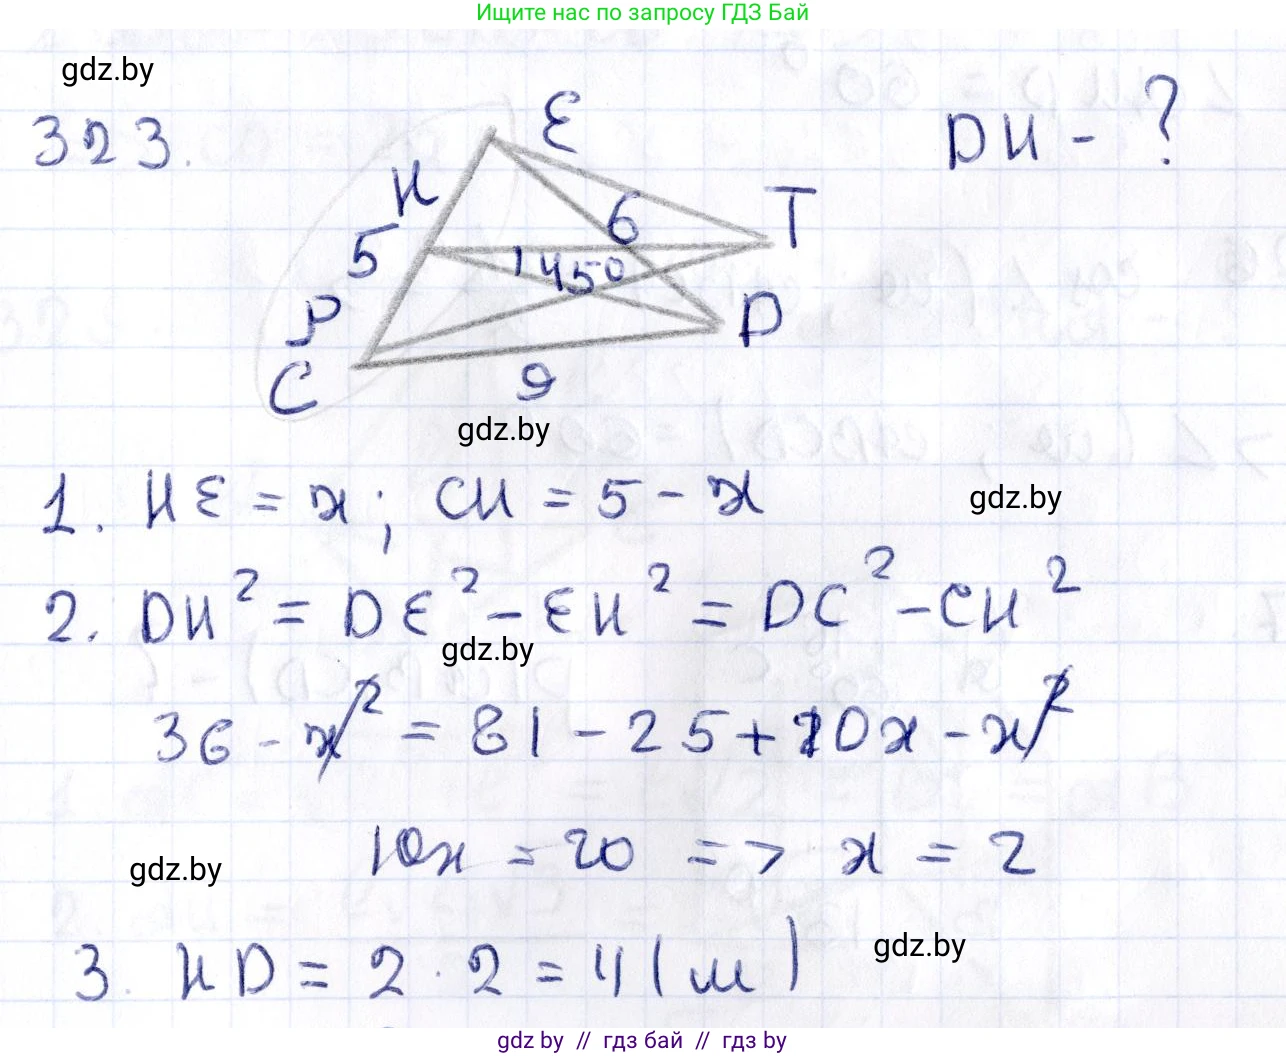 Ищите нас по запросу ГДЗ Бай
gdz.by
323.
E
DH - ?
H
T
6
5
145°
P
D
C
9
gdz.by
1. HE = x; CH = 5 - x
gdz.by
2. DH² = DE² - EH² = DC² - CH²
gdz.by
36 - x² = 81 - 25 + 10x - x²
10x = 20 => x = 2
gdz.by
3. HD = 2 · 2 = 4 (м)
gdz.by
gdz.by // гдз бай // гдз by